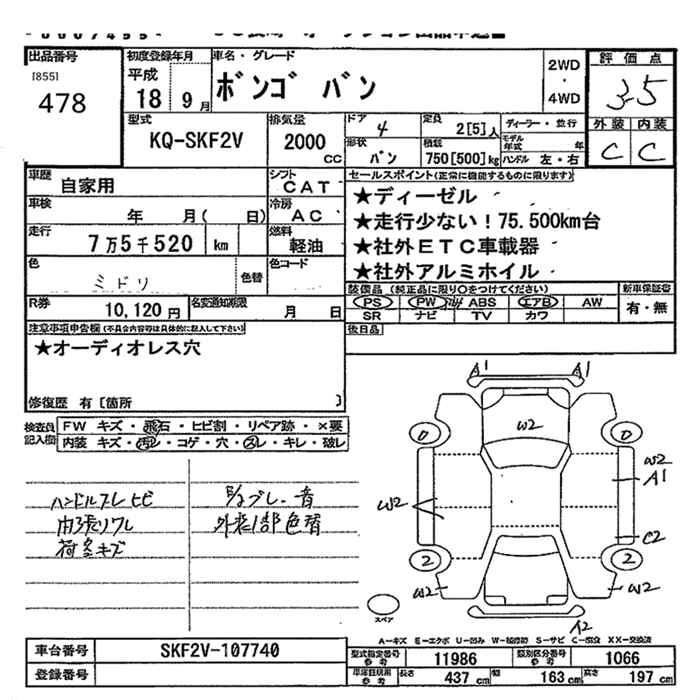 出品番号
[855]
478
初度登録年月
平成
18 9月
車名・グレード
ボンゴ バン
2WD
・
4WD
評価点
3.5
外装 内装
C C
型式
KQ-SKF2V
排気量
2000
CC
ドア
4
定員
2[5]人
ディーラー・並行
形状
バン
積載
750[500]kg
モデル年式 年
ハンドル 左・右
車歴
自家用
シフト
CAT
車検
年 月( 日)
冷房
AC
走行
7万5千520 km
燃料
軽油
色
ミドリ
色替
色コード
R券
10,120円
名変通知期限
月 日
セールスポイント(正常に機能するものに限ります)
★ディーゼル
★走行少ない!75.500km台
★社外ETC車載器
★社外アルミホイル
装備品 (純正品に限り○をつけてください)
PS PW ABS エアB AW
SR ナビ TV カワ
新車保証書
有・無
後日品
注意事項申告欄(不具合内容等は具体的に記入して下さい)
★オーディオレス穴
修復歴 有[箇所 ]
検査員記入欄
FW キズ・飛石・ヒビ割・リペア跡・×要
内装 キズ・汚レ・コゲ・穴・スレ・キレ・破レ
ハンドルスレ ヒビ
内張りワレ
荷室キズ
外装1部色替
A1 A1
W2
0 0
W2
A1
W2
C2
2 2
W2 W2
A2
スペア
A-キズ E-エクボ U-凹み W-補修跡 S-サビ C-腐食 XX-交換済
車台番号
SKF2V-107740
登録番号
型式指定番号
参考
11986
類別区分番号
参考
1066
車検証積用
参考
長さ
437 cm
幅
163 cm
高さ
197 cm